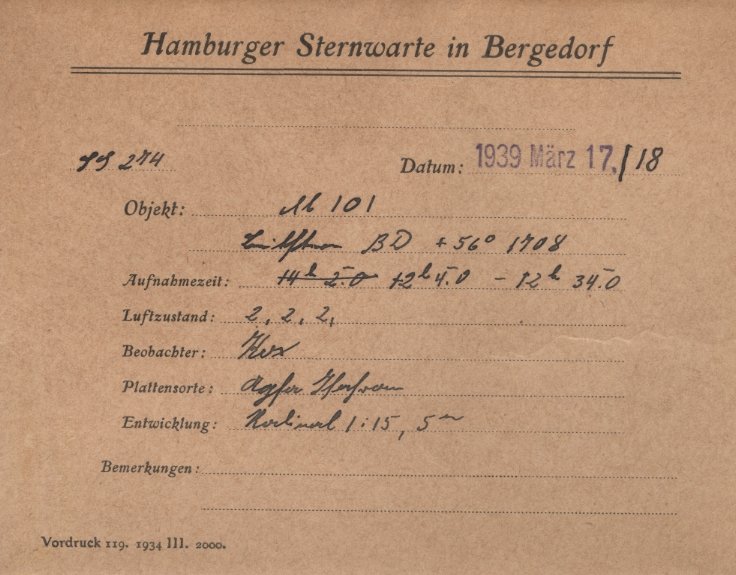 Hamburger Sternwarte in Bergedorf
SS 274 Datum: 1939 März 17./18
Objekt: M 101
Leitstern BD +56° 1708
Aufnahmezeit: 12h 4.0 - 12h 34.0
Luftzustand: 2, 2, 2,
Beobachter:
Plattensorte: Agfa Isochrom
Entwicklung: Rodinal 1:15, 5m
Bemerkungen:
Vordruck 119. 1934 III. 2000.